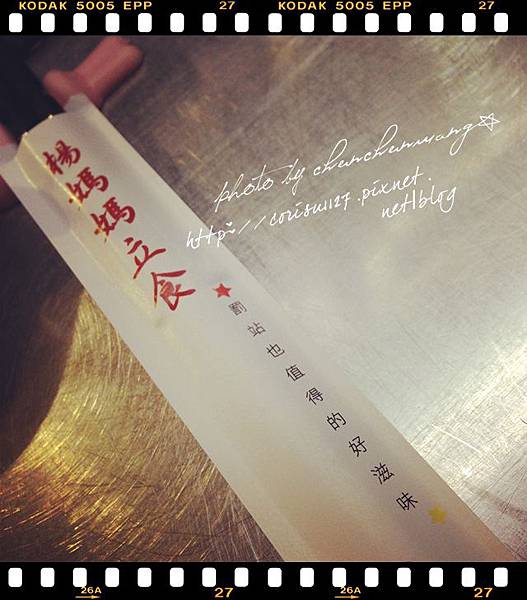 KODAK 5005 EPP 27 KODAK 5005 EPP 27
photo by chunchunwang☆
http://corisu1127.pixnet.
net/blog
楊媽媽立食
★罰站也值得的好滋味★
26A 27 26A 27